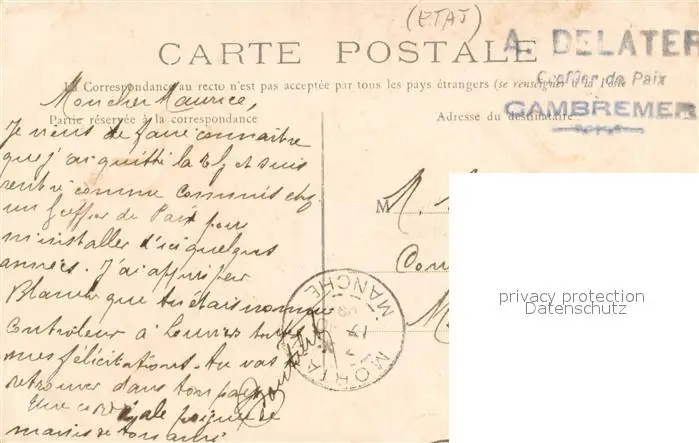 (ETAT)
A. DELATER
CARTE POSTALE
Greffier de Paix
La Correspondance au recto n'est pas acceptée par tous les pays étrangers (se renseigner à la Poste
CAMBREMER
Mon cher Maurice,
Partie réservée à la correspondance
Adresse du destinataire
Je viens de faire connaître
que j'ai quitté la et suis
rentré comme commis chez
un Greffier de Paix pour
m'installer d'ici quelques
années. J'ai appris par
Blanche que tu étais nommé
Contrôleur à Louviers toutes
mes félicitations. tu vas
retrouver dans ton pays
Une cordiale poignée de
mains de ton ami
M
M.
MORTAIN
MANCHE
17
privacy protection
Datenschutz